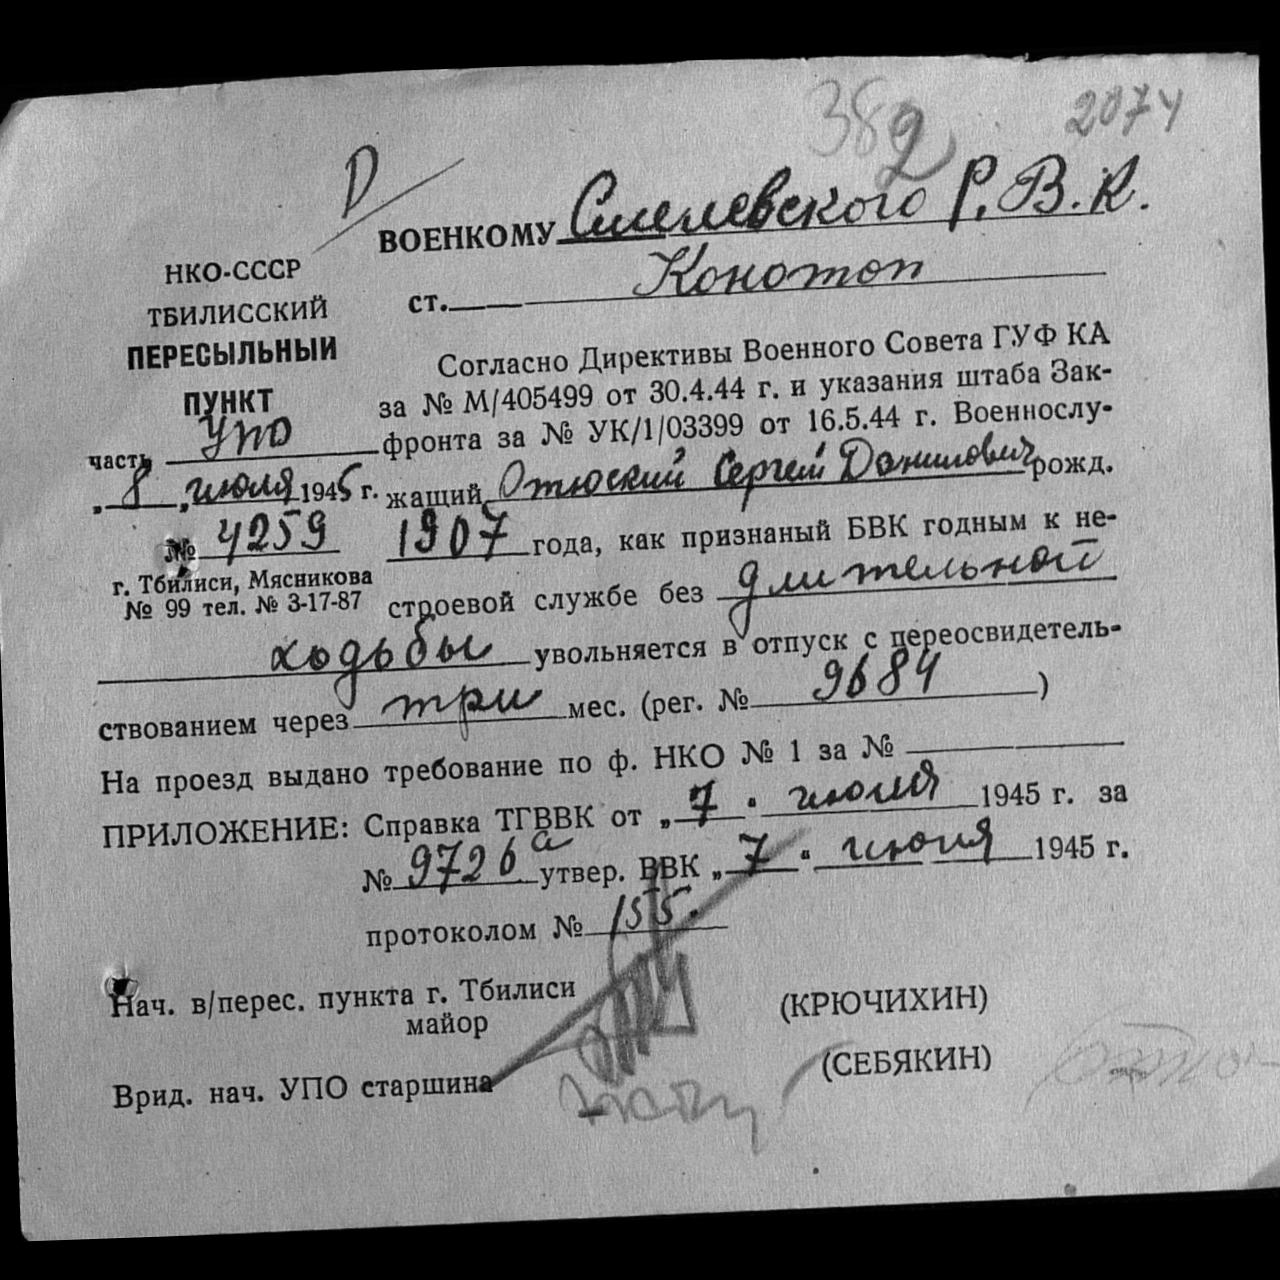 382 2074
D
ВОЕНКОМУ Смелевского Р.В.К.
ст. Конотоп
НКО-СССР
ТБИЛИССКИЙ
ПЕРЕСЫЛЬНЫЙ
ПУНКТ
часть УПО
„8„ июля 1945 г.
№ 4259
г. Тбилиси, Мясникова
№ 99 тел. № 3-17-87
Согласно Директивы Военного Совета ГУФ КА
за № М/405499 от 30.4.44 г. и указания штаба Зак-
фронта за № УК/1/03399 от 16.5.44 г. Военнослу-
жащий Отюский Сергей Данилович рожд.
1907 года, как признаный БВК годным к не-
строевой службе без длительной
ходьбы увольняется в отпуск с переосвидетель-
ствованием через три мес. (рег. № 9684)
На проезд выдано требование по ф. НКО № 1 за №
ПРИЛОЖЕНИЕ: Справка ТГВВК от „7" июля 1945 г. за
№ 9726а утвер. ВВК „7" июля 1945 г.
протоколом № 155.
Нач. в/перес. пункта г. Тбилиси
майор (КРЮЧИХИН)
Врид. нач. УПО старшина (СЕБЯКИН)